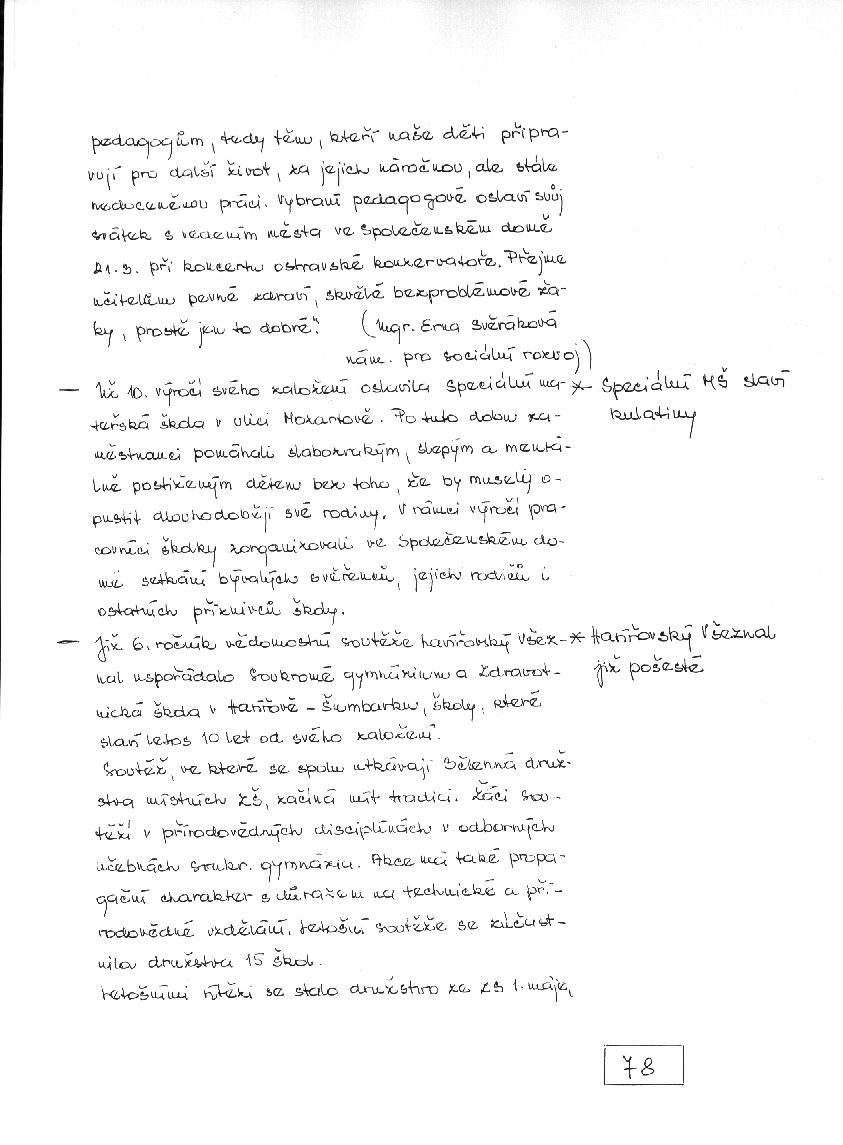 pedagogům, tedy těm, kteří naše děti připra-
vují pro další život, za jejich náročnou, ale stále
nedoceněnou práci. Vybraní pedagogové oslaví svůj
svátek s vedením města ve Společenském domě
21.3. při koncertu ostravské konzervatoře. Přejme
učitelům pevné zdraví, skvělé bezproblémové žá-
ky, prostě jen to dobré". (Mgr. Erna Svěráková
nám. pro sociální rozvoj)
— Už 10. výročí svého založení oslavila Speciální ma- * Speciální MŠ slaví
teřská škola v ulici Mozartově. Po tuto dobu za- kulatiny
městnanci pomáhali slabozrakým, slepým a mentá-
lně postiženým dětem bez toho, že by musely o-
pustit dlouhodoběji své rodiny. V rámci výročí pra-
covníci školky zorganizovali ve Společenském do-
mě setkání bývalých svěřenců, jejich rodičů i
ostatních příznivců školy.
— Již 6. ročník vědomostní soutěže havířovský Všez- * Havířovský Všeznal
nal uspořádalo Soukromé gymnázium a Zdravot- již pošesté
nická škola v Havířově - Šumbarku, školy, které
slaví letos 10 let od svého založení.
Soutěž, ve které se spolu utkávají 3členná druž-
stva místních ZŠ, začíná mít tradici. Žáci sou-
těží v přírodovědných disciplínách v odborných
učebnách soukr. gymnázia. Akce má také propa-
gační charakter s důrazem na technické a pří-
rodovědné vzdělání. Letošní soutěže se zúčast-
nila družstva 15 škol.
Letošními vítězi se stalo družstvo ze ZŠ 1. máje,
78